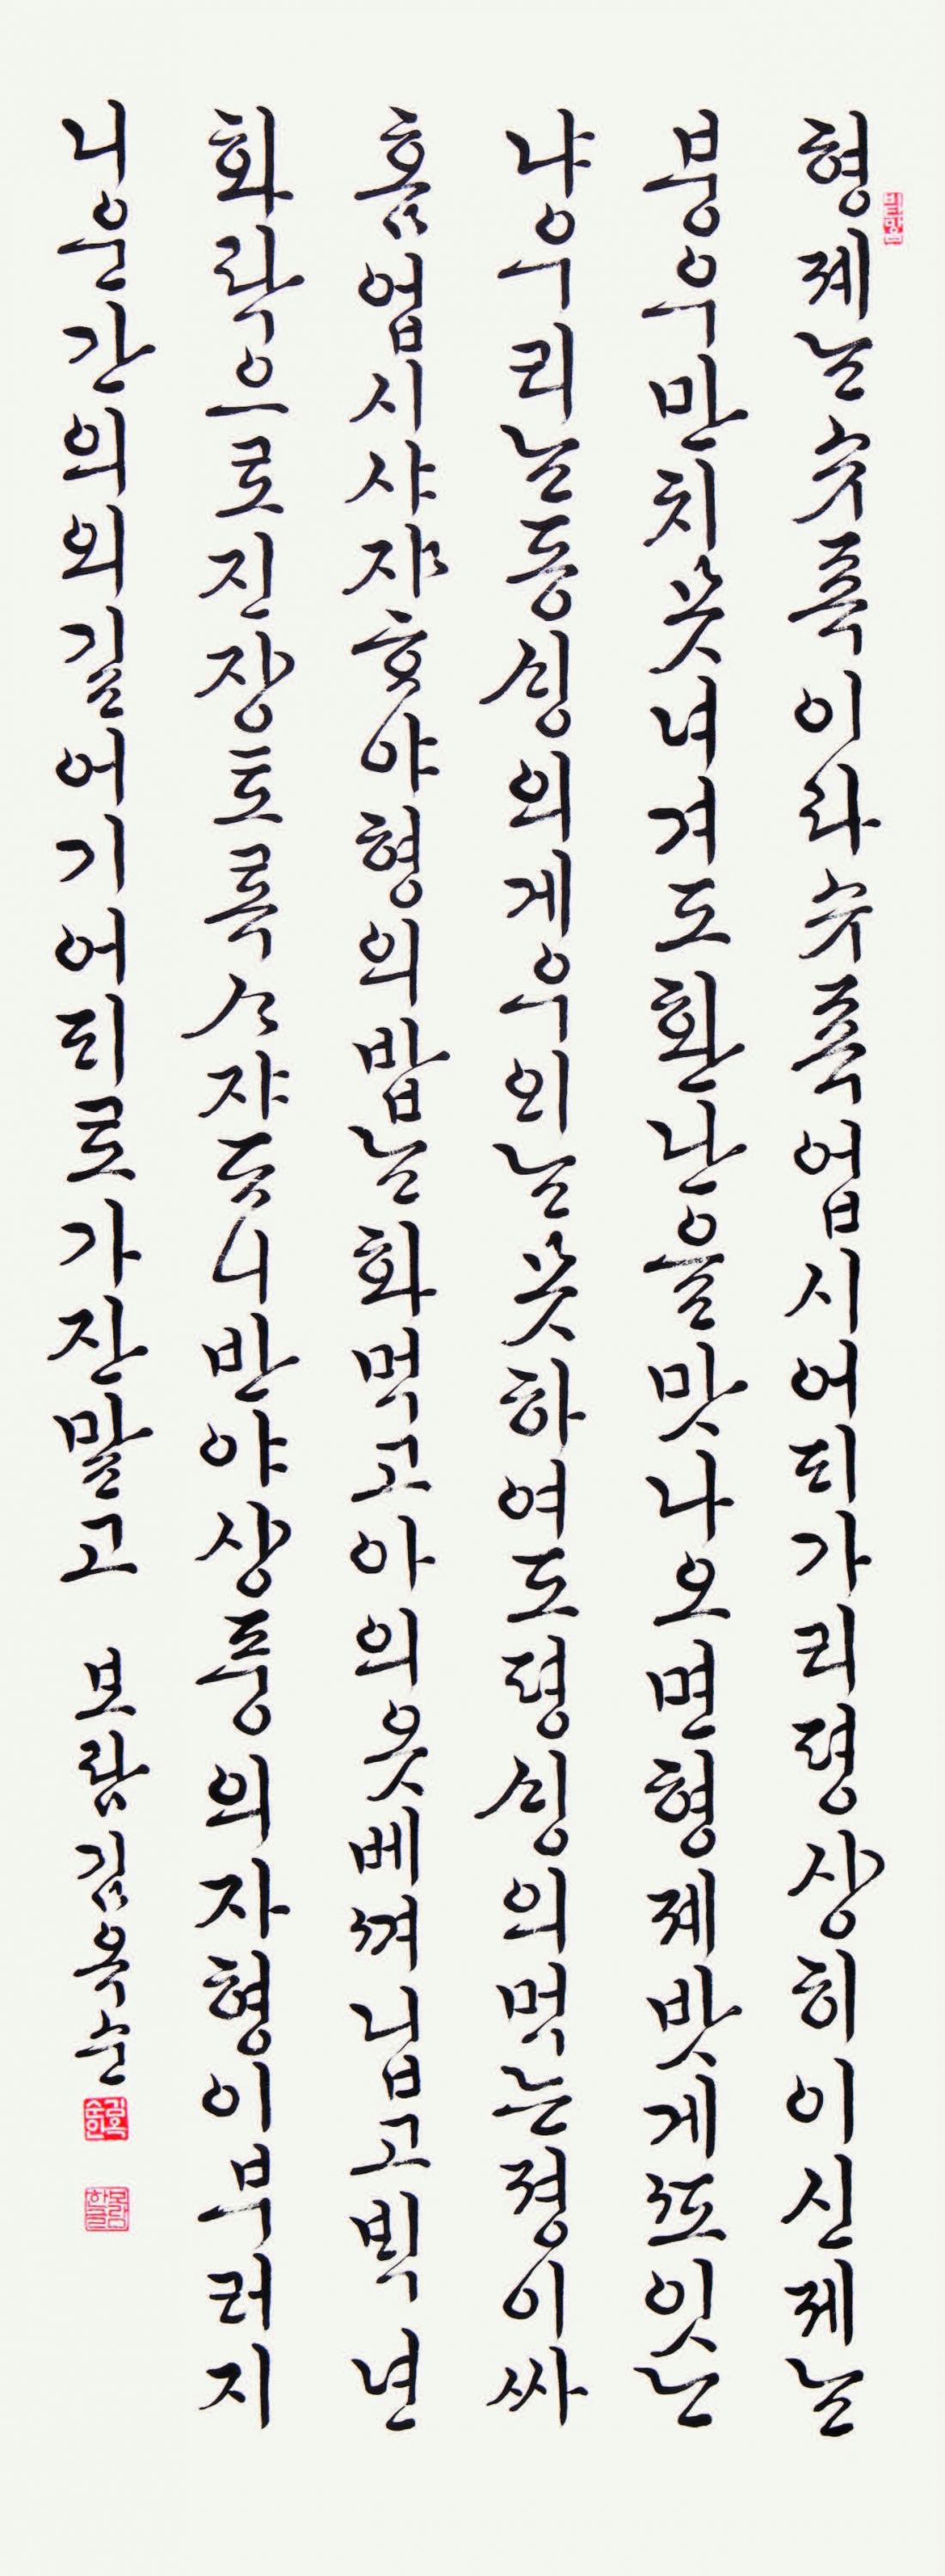 형졔는슈죡이라슈죡업시어디가리평샹히이신졔는
붕우만치못녀겨도환난을맛나오면형졔밧게ᄯᅩ잇는
냐우리는동싱의게우의는못하여도평싱의먹는졍이싸
홈업시샤쟈ᄒᆞ야형의밥는화먹고아의옷베껴닙고빅년
화락으로진쟝토록ᄉᆞ쟈듯니반야샹풍의자형이부러지
니운간의외길어기어디로가잔말고 보람김옥순